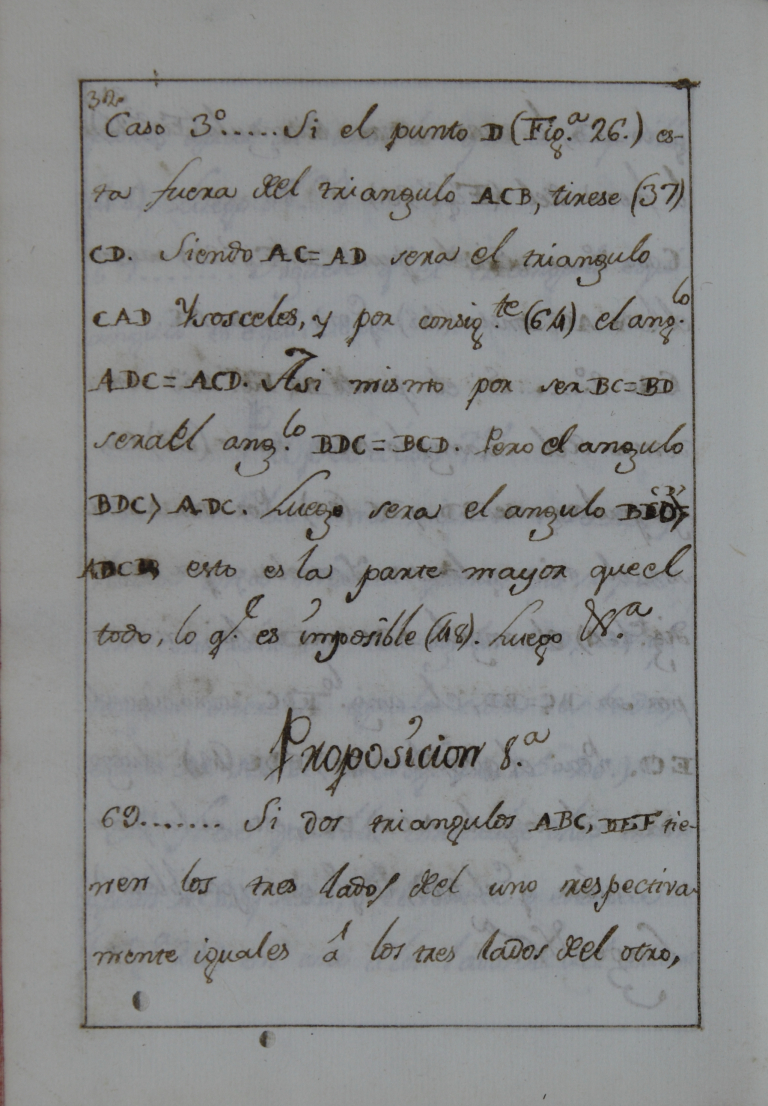 32.
Caso 3º.....Si el punto D (Fig.ª 26.) es-
ta fuera del triangulo ACB, tirese (37)
CD. Siendo AC=AD sera el triangulo
CAD Ysosceles, y por consig.te (64) el ang.lo
ADC=ACD. Asi mismo por ser BC=BD
sera el ang.lo BDC=BCD. Pero el angulo
BDC> ADC. Luego sera el angulo
esto es la parte mayor que el
todo, lo q.e es imposible (48). Luego &.a
Proposicion 8.ª
69....... Si dos triangulos ABC, DEF tie-
nen los tres lados del uno respectiva-
mente iguales á los tres lados del otro,